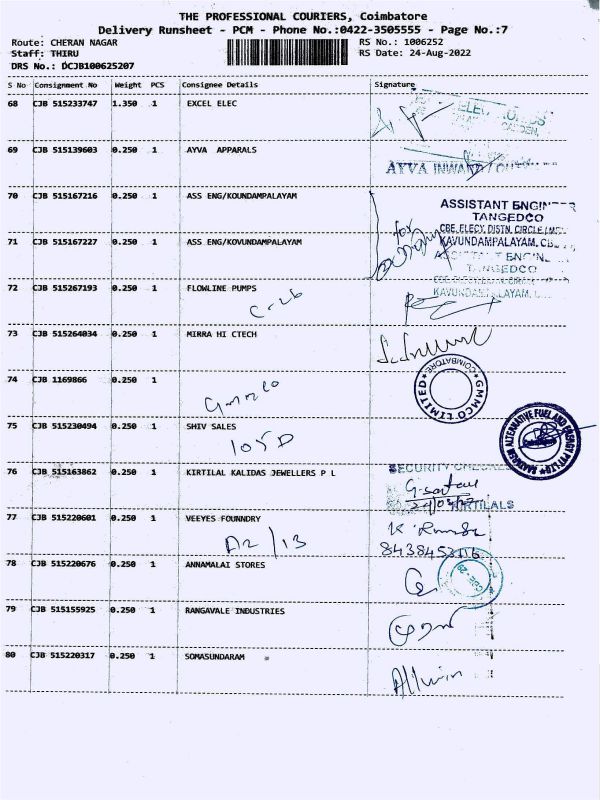 THE PROFESSIONAL COURIERS, Coimbatore
Delivery Runsheet - PCM - Phone No.:0422-3505555 - Page No.:7
Route: CHERAN NAGAR RS No.: 1006252
Staff: THIRU RS Date: 24-Aug-2022
DRS No.: DCJB100625207
S No Consignment No Weight PCS Consignee Details Signature
68 CJB 515233747 1.350 1 EXCEL ELEC
69 CJB 515139603 0.250 1 AYVA APPARALS
AYVA INWARD
70 CJB 515167216 0.250 1 ASS ENG/KOUNDAMPALAYAM
ASSISTANT ENGINEER
TANGEDCO
for CBE. ELECY. DISTN. CIRCLE
71 CJB 515167227 0.250 1 ASS ENG/KOVUNDAMPALAYAM
KAVUNDAMPALAYAM,
TANGEDCO
72 CJB 515267193 0.250 1 FLOWLINE PUMPS
C-26
73 CJB 515264034 0.250 1 MIRRA HI CTECH
74 CJB 1169866 0.250 1
GMMCO LIMITED COIMBATORE
Gmmco
75 CJB 515230494 0.250 1 SHIV SALES
105 D
ALTERNATIVE FUEL AND ENERGY PVT LTD
76 CJB 515163862 0.250 1 KIRTILAL KALIDAS JEWELLERS P L
SECURITY
KIRTILALS
77 CJB 515220601 0.250 1 VEEYES FOUNNDRY
A2/13
78 CJB 515220676 0.250 1 ANNAMALAI STORES
79 CJB 515155925 0.250 1 RANGAVALE INDUSTRIES
80 CJB 515220317 0.250 1 SOMASUNDARAM
Allwin